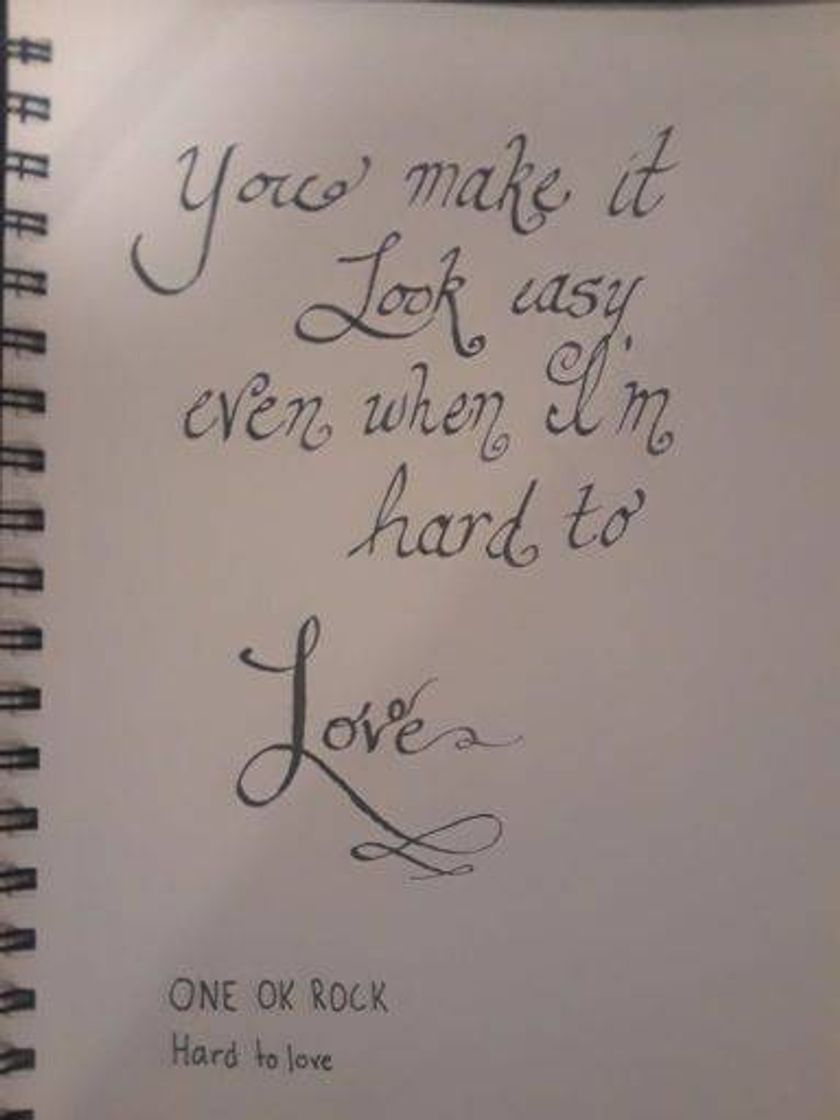 You make it
Look easy
even when I'm
hard to
Love
ONE OK ROCK
Hard to love